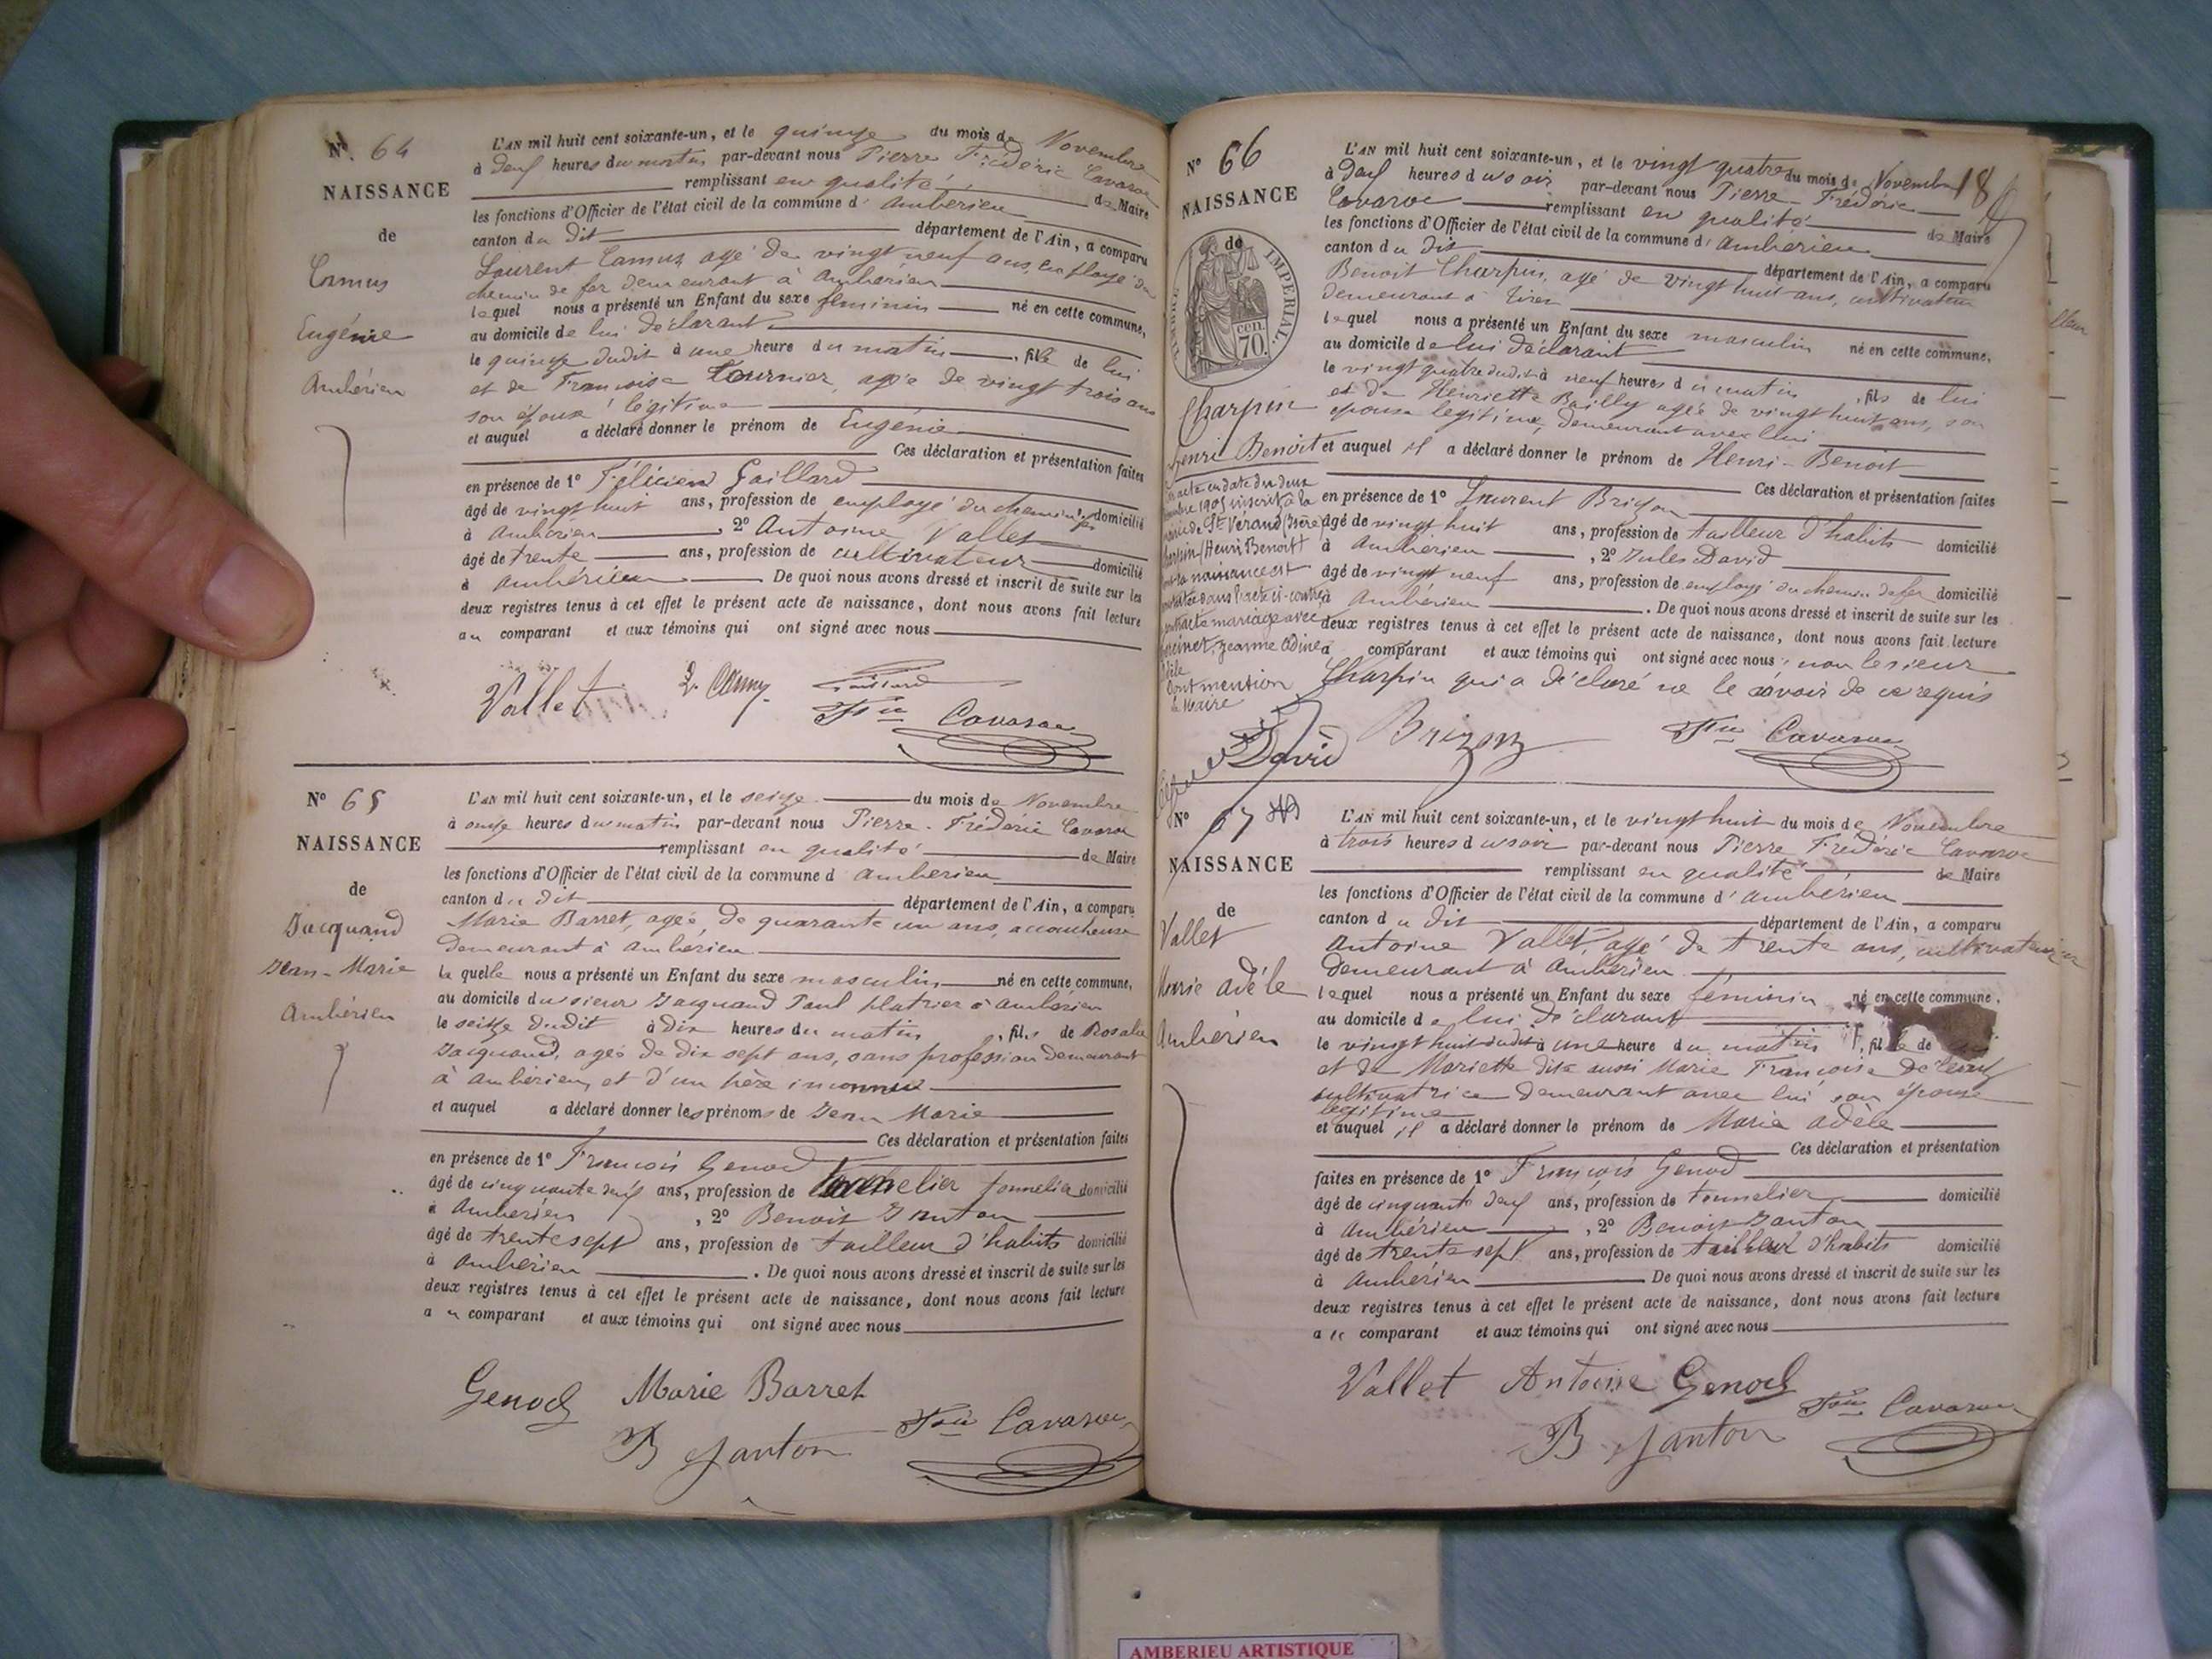 N° 64
NAISSANCE
de
Camus
Eugénie
Ambérieu
L'AN mil huit cent soixante-un, et le quinze du mois de Novembre
à deux heures du matin par-devant nous Pierre Frédéric Cavaroc
remplissant en qualité de Maire
les fonctions d'Officier de l'état civil de la commune d' Ambérieu
canton du dit département de l'Ain, a comparu
Laurent Camus agé de vingt neuf ans, employé du
chemin de fer demeurant à Ambérieu
lequel nous a présenté un Enfant du sexe féminin né en cette commune,
au domicile de lui déclarant
le quinze dudit à une heure du matin, fille de lui
et de Françoise Tournier, agée de vingt trois ans
son épouse légitime
et auquel a déclaré donner le prénom de Eugénie
Ces déclaration et présentation faites
en présence de 1° Félicien Gaillard
âgé de vingt huit ans, profession de employé du chemin de fer domicilié
à Ambérieu, 2° Antoine Vallet
âgé de trente ans, profession de cultivateur domicilié
à Ambérieu De quoi nous avons dressé et inscrit de suite sur les
deux registres tenus à cet effet le présent acte de naissance, dont nous avons fait lecture
au comparant et aux témoins qui ont signé avec nous
Vallet L. Camus Gaillard
Cavaroc
N° 65
NAISSANCE
de
Jacquand
Jean-Marie
Ambérieu
L'AN mil huit cent soixante-un, et le seize du mois de Novembre
à onze heures du matin par-devant nous Pierre-Frédéric Cavaroc
remplissant en qualité de Maire
les fonctions d'Officier de l'état civil de la commune d Ambérieu
canton du dit département de l'Ain, a comparu
Marie Barret, agée, de quarante un ans, accoucheuse
demeurant à Ambérieu
laquelle nous a présenté un Enfant du sexe masculin né en cette commune,
au domicile du sieur Jacquand Paul platrier à Ambérieu
le seize dudit à dix heures du matin, fils de Rosalie
Jacquand, agée de dix sept ans, sans profession demeurant
à Ambérieu, et d'un père inconnu
et auquel a déclaré donner les prénoms de Jean Marie
Ces déclaration et présentation faites
en présence de 1° François Genod
âgé de cinquante deux ans, profession de tonnelier domicilié
à Ambérieu, 2° Benoit Janton
âgé de trente sept ans, profession de tailleur d'habits domicilié
à Ambérieu. De quoi nous avons dressé et inscrit de suite sur les
deux registres tenus à cet effet le présent acte de naissance, dont nous avons fait lecture
au comparant et aux témoins qui ont signé avec nous
Genod Marie Barret
B Janton Cavaroc
N° 66
NAISSANCE
de
IMPERIAL
cen.
70.
Charpin
Henri Benoit
L'AN mil huit cent soixante-un, et le vingt quatre du mois de Novembre
à deux heures du soir par-devant nous Pierre-Frédéric
Cavaroc remplissant en qualité de Maire
les fonctions d'Officier de l'état civil de la commune d' Ambérieu
canton du dit département de l'Ain, a comparu
Benoit Charpin, agé de vingt huit ans, cultivateur
demeurant à
lequel nous a présenté un Enfant du sexe masculin né en cette commune,
au domicile de lui déclarant
le vingt quatre dudit à neuf heures du matin, fils de lui
et de Henriette Bailly agée de vingt huit ans, son
épouse légitime, demeurant avec lui
et auquel il a déclaré donner le prénom de Henri-Benoit
Ces déclaration et présentation faites
en présence de 1° Laurent Brizon
âgé de vingt huit ans, profession de tailleur d'habits domicilié
à Ambérieu, 2° Jules David
âgé de vingt neuf ans, profession de employé du chemin de fer domicilié
à Ambérieu. De quoi nous avons dressé et inscrit de suite sur les
deux registres tenus à cet effet le présent acte de naissance, dont nous avons fait lecture
comparant et aux témoins qui ont signé avec nous, non le sieur
Charpin qui a déclaré ne le savoir de ce requis
acte en date du deux
1905 inscrit à la
mairie de St Vérand (Isère)
Charpin Henri Benoit
dont la naissance est
constatée dans l'acte ci-contre
a contracté mariage avec
Jeanne
Adèle
Dont mention
le Maire
David Brizon Cavaroc
N° 67
NAISSANCE
de
Vallet
Marie Adèle
Ambérieu
L'AN mil huit cent soixante-un, et le vingt huit du mois de Novembre
à trois heures du soir par-devant nous Pierre Frédéric Cavaroc
remplissant en qualité de Maire
les fonctions d'Officier de l'état civil de la commune d' Ambérieu
canton du dit département de l'Ain, a comparu
Antoine Vallet, agé de trente ans, cultivateur
demeurant à Ambérieu
lequel nous a présenté un Enfant du sexe féminin né en cette commune,
au domicile de lui déclarant
le vingt huit dudit à une heure du matin, fille de
et de Mariette dite aussi Marie Françoise
cultivatrice demeurant avec lui son épouse
légitime
et auquel il a déclaré donner le prénom de Marie Adèle
Ces déclaration et présentation
faites en présence de 1° François Genod
âgé de cinquante deux ans, profession de tonnelier domicilié
à Ambérieu, 2° Benoit Janton
âgé de trente sept ans, profession de tailleur d'habits domicilié
à Ambérieu De quoi nous avons dressé et inscrit de suite sur les
deux registres tenus à cet effet le présent acte de naissance, dont nous avons fait lecture
au comparant et aux témoins qui ont signé avec nous
Vallet Antoine Genod
B Janton Cavaroc
AMBERIEU ARTISTIQUE